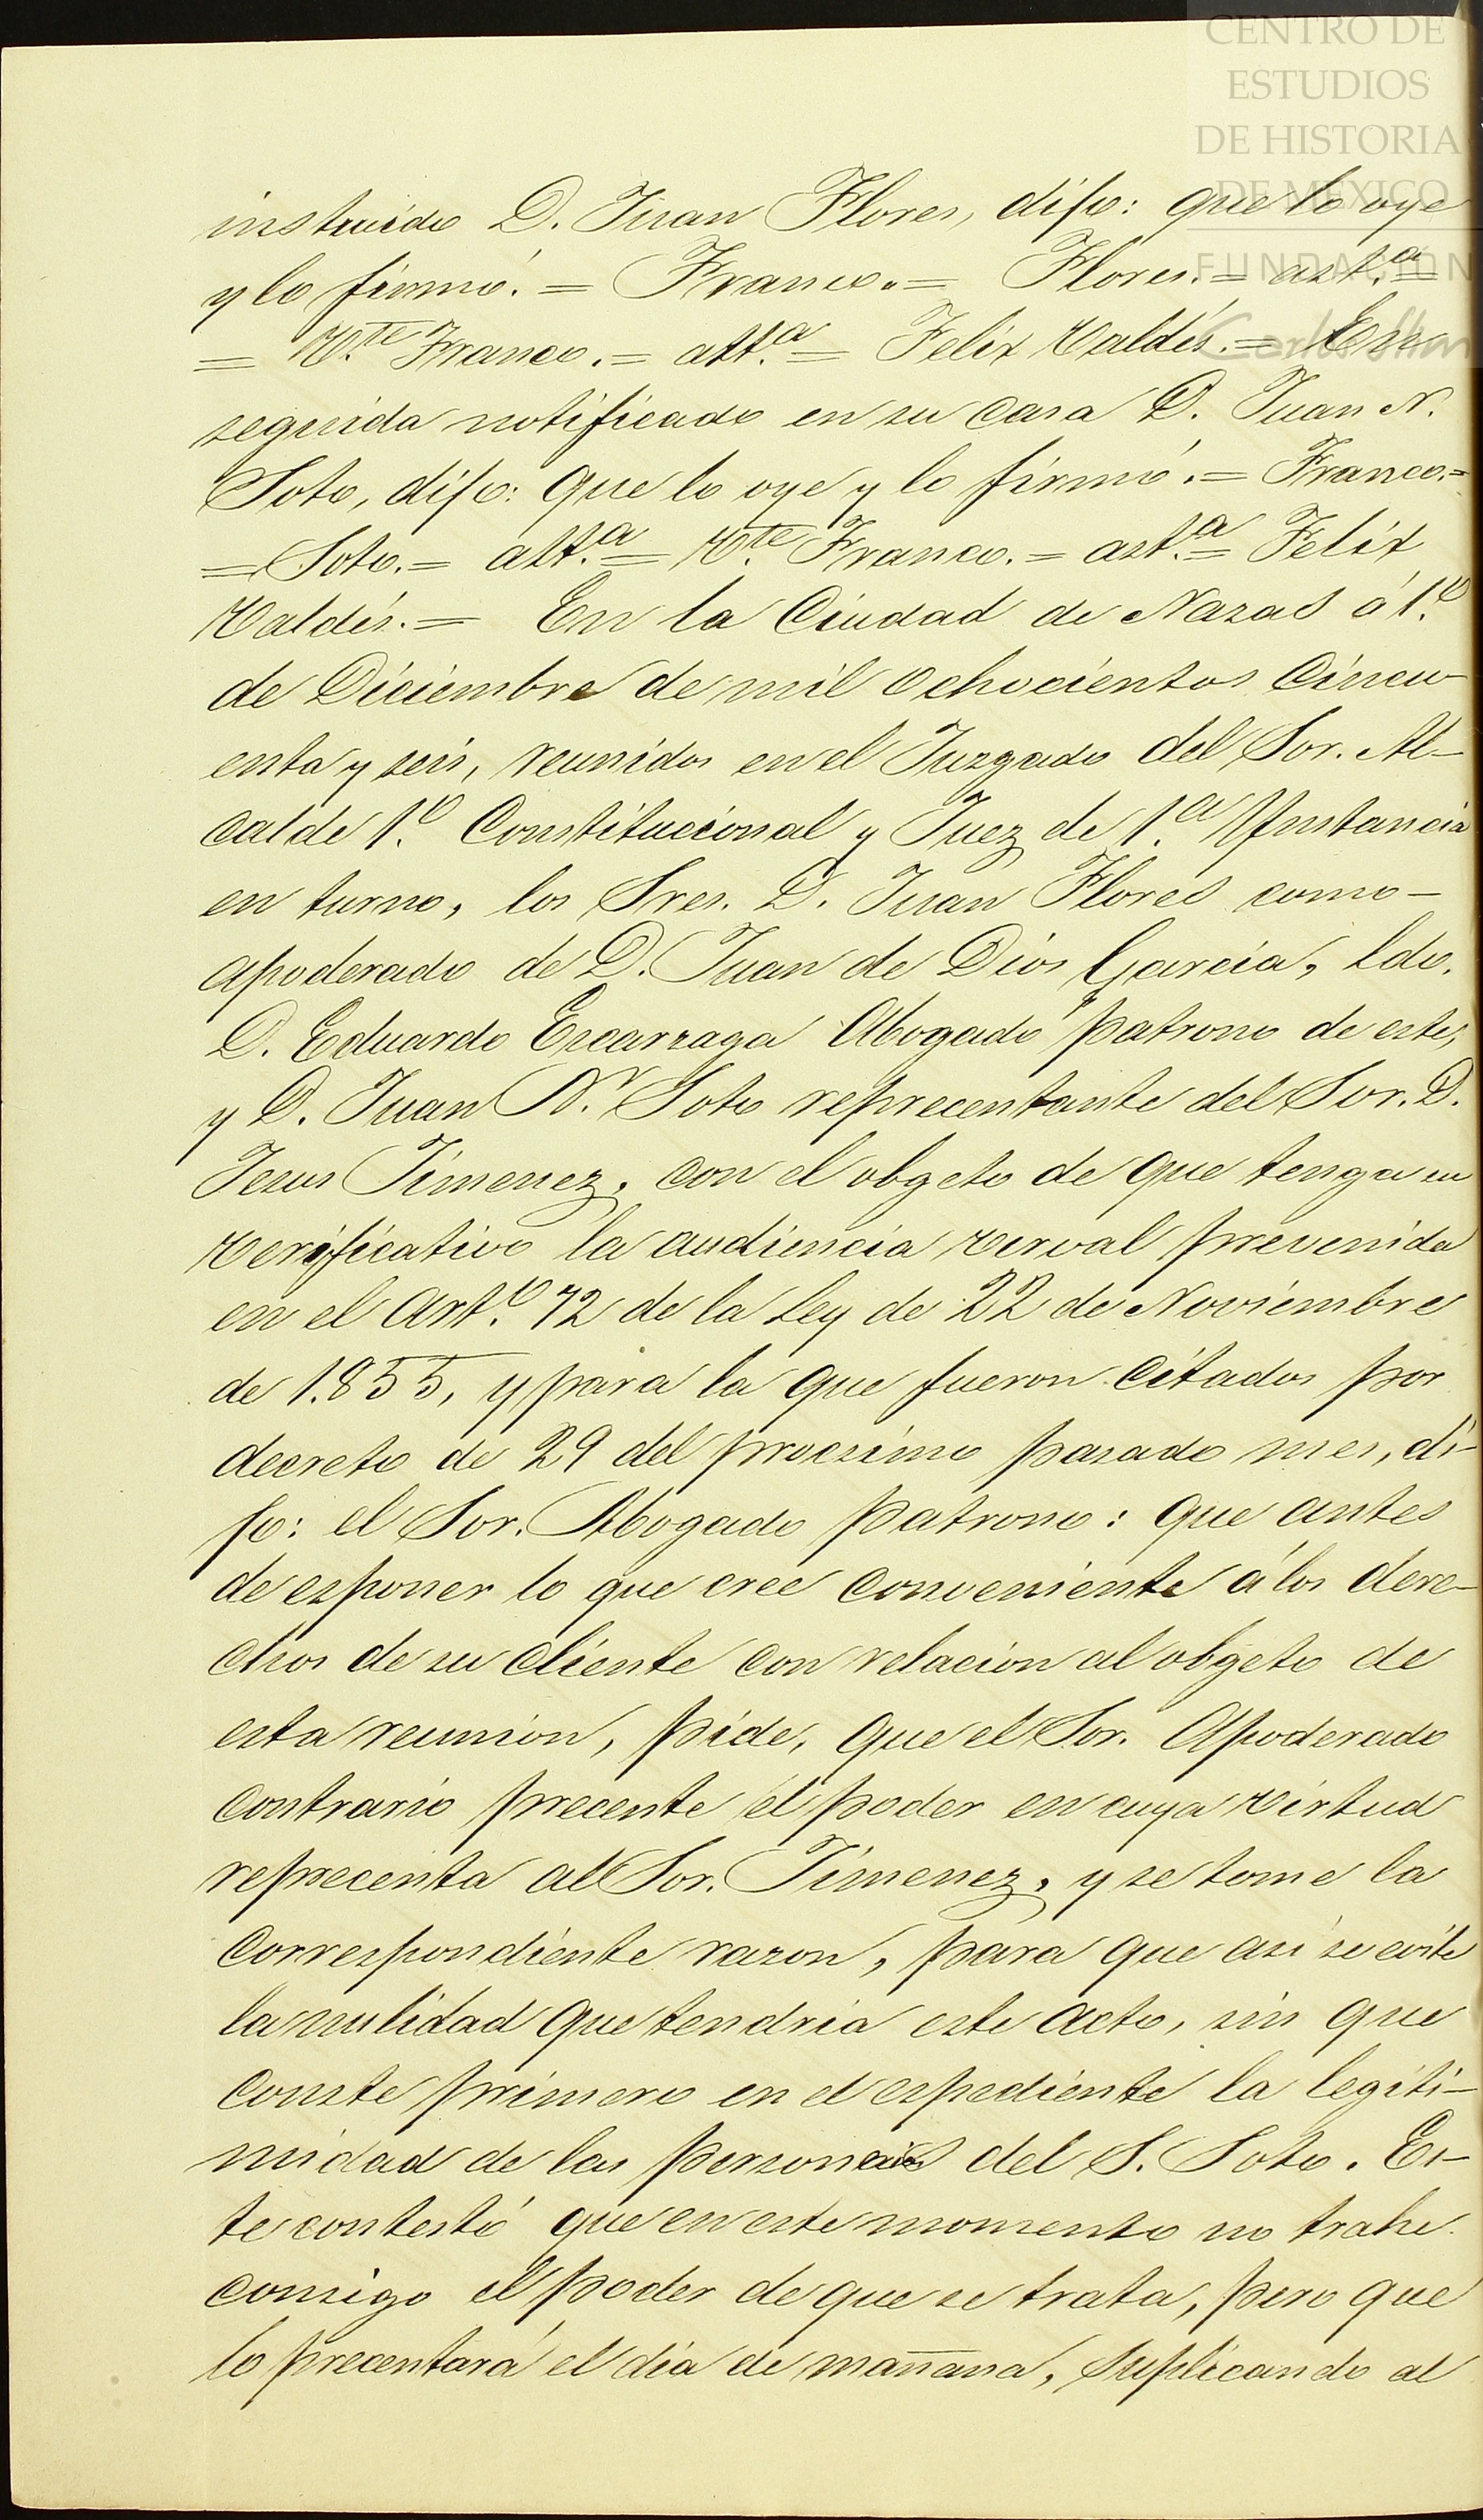 CENTRO DE
ESTUDIOS
DE HISTORIA
DE MÉXICO
FUNDACIÓN
Carlos Slim
instruido D. Juan Flores, dijo: que lo oye
y lo firmó. = Franco. = Flores. = ast.ª =
= Vte. Franco. = ast.ª = Felix Valdés. = En
seguida notificado en su casa D. Juan N.
Soto, dijo: que lo oye y lo firmó. = Franco. =
= Soto. = ast.ª = Vte. Franco. = ast.ª = Felix
Valdés. = En la Ciudad de Nazas á 1.º
de Diciembre de mil ochocientos Cincu-
enta y seis, reunidos en el Juzgado del Sor. Al-
calde 1.º Constitucional y Juez de 1.ª Ynstancia
en turno, los Sres. D. Juan Flores como -
apoderado de D. Juan de Dios Garcia, Ldo.
D. Eduardo Escarzaga Abogado patrono de este,
y D. Juan N. Soto reprecentante del Sor. D.
Jesus Jimenez, con el obgeto de que tenga su
verificativo la audiencia verval prevenida
en el Art.º 72 de la Ley de 22 de Noviembre
de 1.855, y para la que fueron citados por
decreto de 29 del procsimo pasado mes, di-
jo: el Sor. Abogado patrono: que antes
de esponer lo que cree conveniente á los dere-
chos de su cliente con relacion al obgeto de
esta reunion, pide, que el Sor. Apoderado
contrario precente el poder en cuya virtud
reprecenta al Sor. Jimenez, y se tome la
correspondiente razon, para que asi se evite
la nulidad que tendria este acto, sin que
conste primero en el espediente la legiti-
midad de las personerias del S. Soto. Es-
te contestó que en este momento no trahe
consigo el poder de que se trata, pero que
lo precentará el dia de mañana, suplicando al